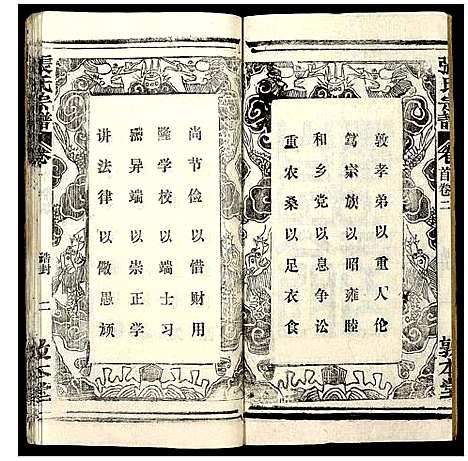 張氏宗譜
卷首卷二
敦本堂
敦孝弟以重人伦
笃宗族以昭雍睦
和乡党以息争讼
重农桑以足衣食
尚节俭以惜财用
隆学校以端士习
黜异端以崇正学
讲法律以儆愚顽
張氏宗譜
卷
诰封
二
敦本堂